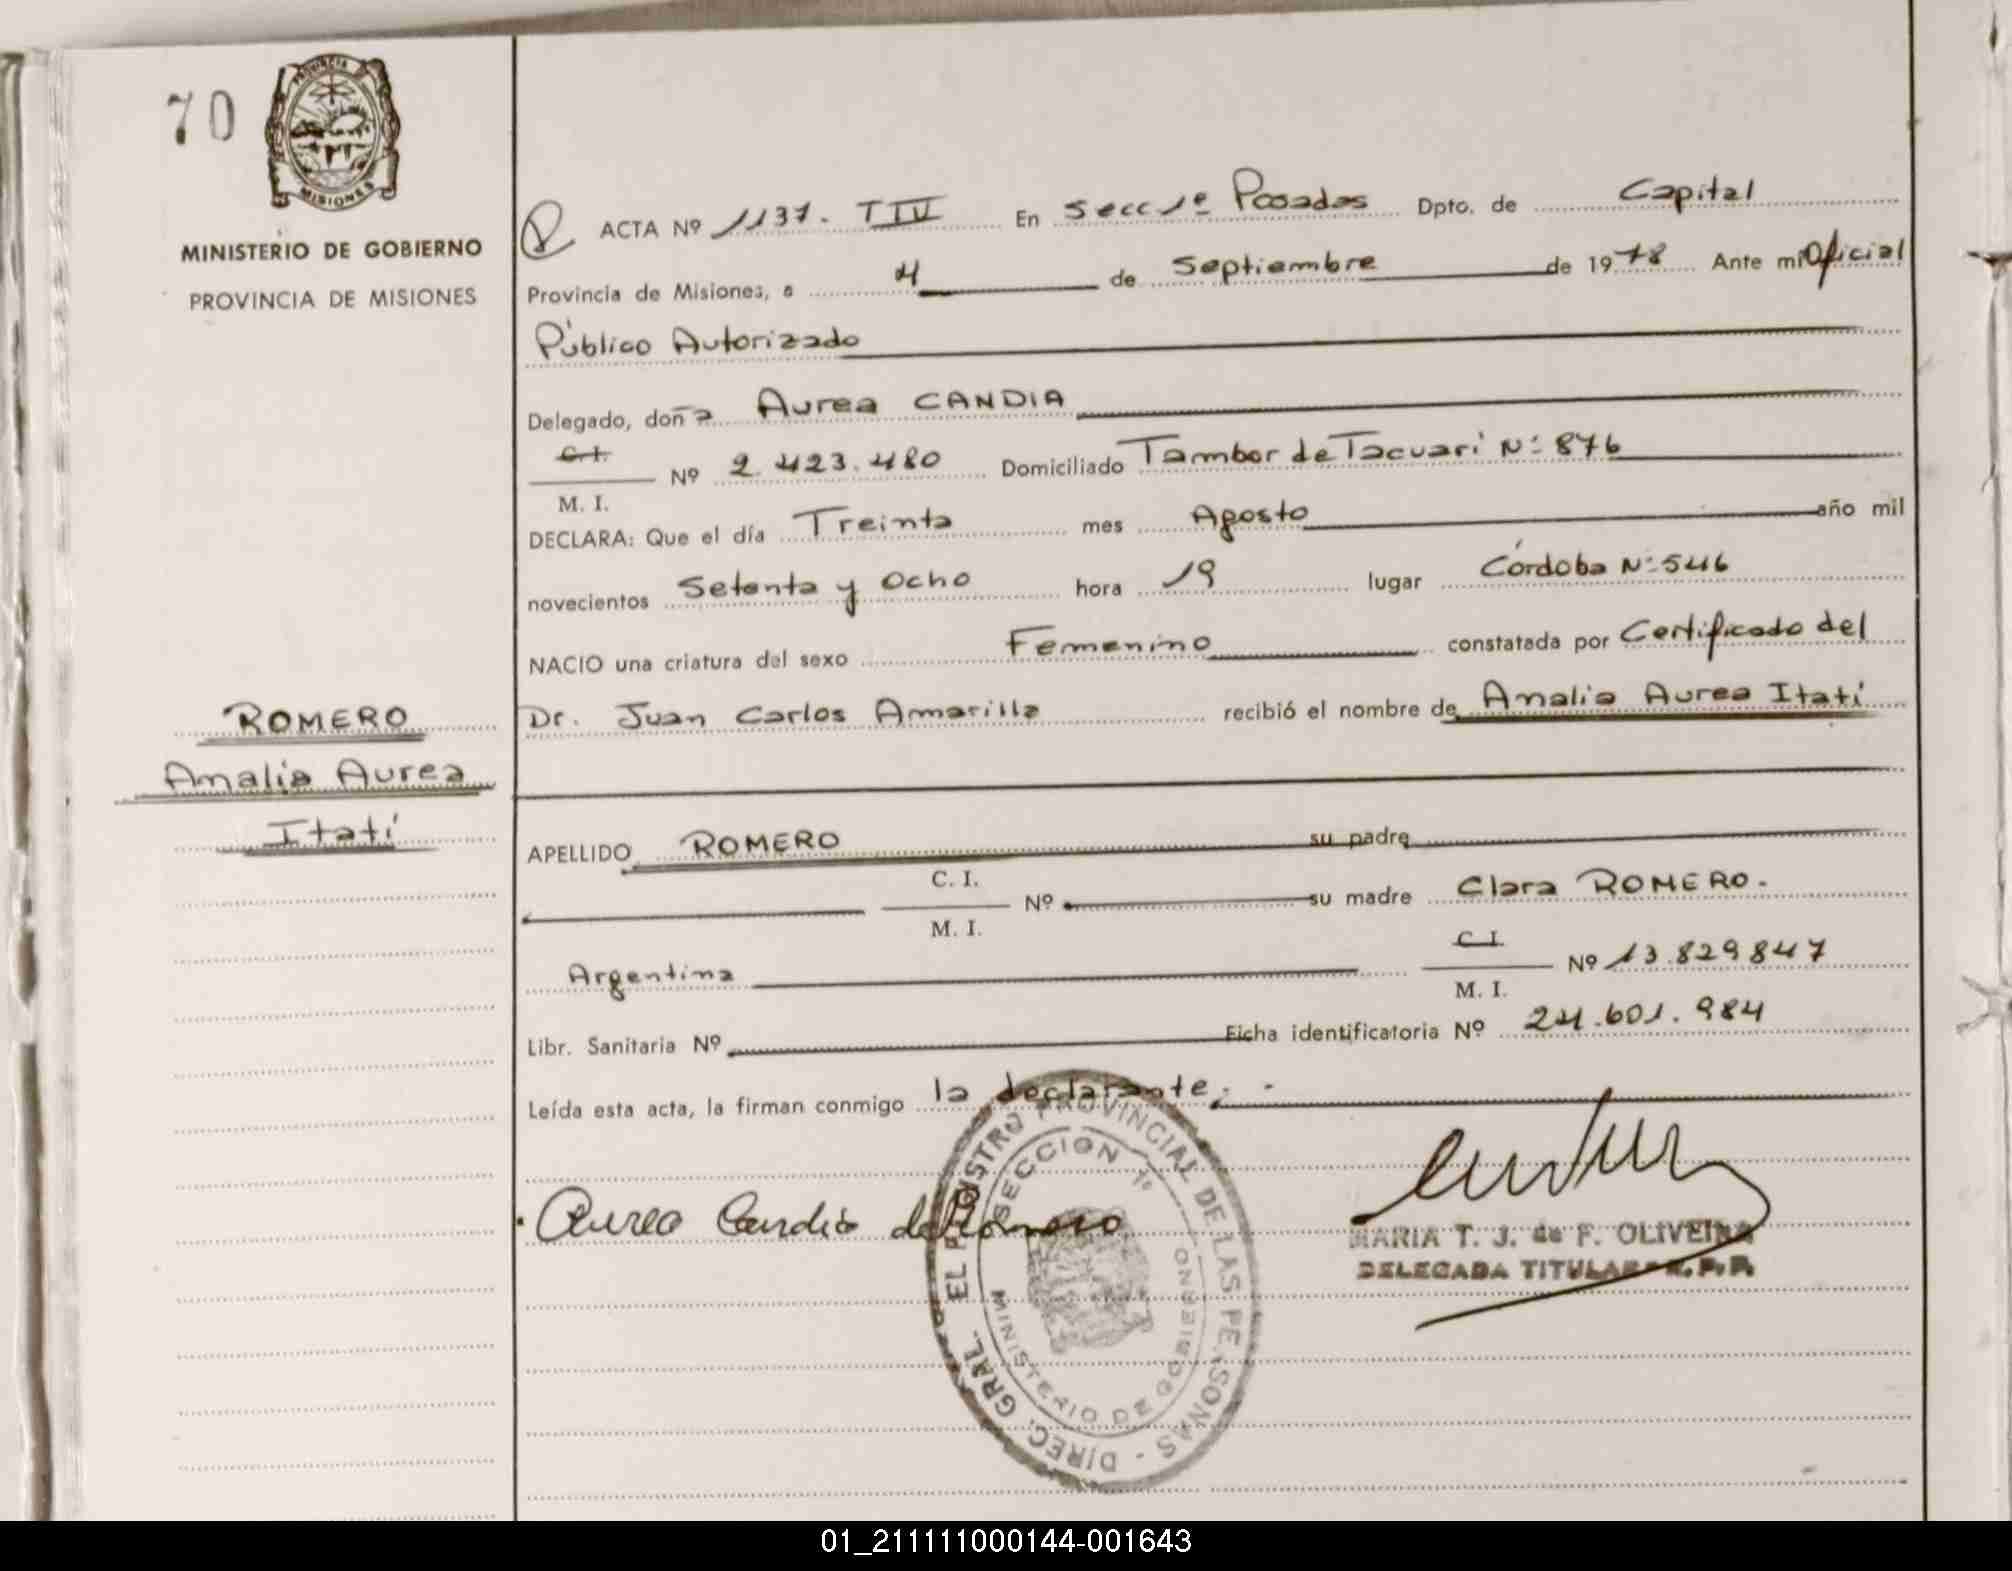 70
PROVINCIA
MISIONES
MINISTERIO DE GOBIERNO
PROVINCIA DE MISIONES
ROMERO
Amalia Aurea
Itatí
ACTA Nº 1137. TIV En Secc 1º Posadas Dpto. de Capital
Provincia de Misiones, a 4 de Septiembre de 1978 Ante mi Oficial
Público Autorizado
Delegado, doña Aurea CANDIA
C.I.
M. I.
Nº 2.423.480 Domiciliado Tambor de Tacuari Nº 876
DECLARA: Que el día Treinta mes Agosto año mil
novecientos Setenta y Ocho hora 19 lugar Córdoba Nº 546
NACIO una criatura del sexo Femenino constatada por Certificado del
Dr. Juan Carlos Amarilla recibió el nombre de Analia Aurea Itatí
APELLIDO ROMERO su padre
C. I.
M. I.
Nº su madre Clara ROMERO.
Argentina C I Nº 13.829847
M. I.
Libr. Sanitaria Nº Ficha identificatoria Nº 24.601.984
Leída esta acta, la firman conmigo la declarante.-
Aurea Candia de Romero
DIREC. GRAL. DEL REGISTRO PROVINCIAL DE LAS PERSONAS -
SECCION 1º
MINISTERIO DE GOBIERNO
MARIA T. J. de F. OLIVEIRA
DELEGADA TITULAR R.P.P.
01_211111000144-001643